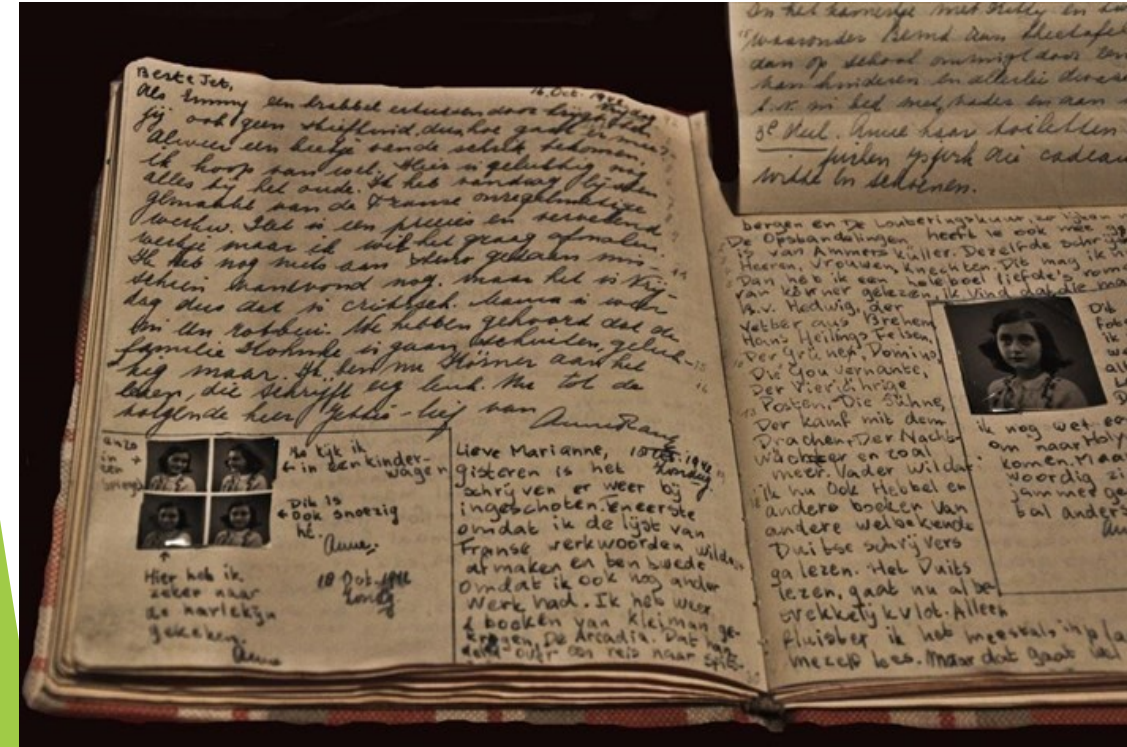 Beste Jet,
16 Oct. 1942
Vrijdag
Als Emmy een krabbel ertussen door krijgt
jij ook geen stiefkind, dus hoe gaat er mee?
Alweer een beetje van de schrik bekomen,
ik hoop van wel. Hier is gelukkig nog
alles bij het oude. Ik heb vandaag lijsten
gemaakt van de Franse onregelmatige
werkw. Dat is een precies en vervelend
werkje maar ik wil het graag afmaken.
Ik heb nog niets aan steno gedaan mis-
schien vanavond nog. maar het is Vrij-
dag dus dat is critisch. Mama is weer
We hebben gehoord dat de
familie is gaan schuilen, geluk-
kig maar. Ik ben nu Körner aan het
lezen, die schrijft erg leuk. Nu tot de
volgende keer Jettie-lief van
Anne Frank
in
een
Zo kijk ik
in een kinder-
wagen
Dit is
ook snoezig
hé.
Anne.
Hier heb ik
zeker naar
de harlekijn
gekeken.
Anne
18 Oct. 1942
Zondag
Lieve Marianne,
1942
Zondag
Gisteren is het
schrijven er weer bij
ingeschoten. Eneerste
omdat ik de lijst van
Franse werkwoorden wilde
afmaken en ten twede
omdat ik ook nog ander
werk had. Ik heb weer
2 boeken van Kleiman ge-
kregen, De Arcadia. Dat han-
deld over een reis naar Spits-
bergen en De Louteringskuur, zo lijken
De Opstandelingen, heeft ie ook mee
is van Ammers Küller. Dezelfde schrijf
Heeren, Vrouwen, Knechten. Dit mag ik
Dan heb ik een heleboel liefde's rom
van Körner gelezen, ik vind dat die ma
b.v. Hedwig, der
Vetter aus Brehem
Hans Heilings Felsen,
Der Grüne, Domino,
Die Gouvernante,
Der Vierjährige
Posten, Die Sühne,
Der Kamf mit dem
Drachen, Der Nacht-
wächter en zoal
meer. Vader wil dat
ik nu ook Hebbel en
andere boeken van
andere welbekende
Duitse schrijvers
ga lezen. Het Duits
lezen, gaat nu al be-
trekkelijk vlot. Alleen
fluister ik het meestals inpla
mezelf lees. Maar dat gaat wel
Dit
foto
ik
we
all
ik nog wel
om naar Holy
komen. Maar
woordig zi
jammer ge
tal anders
In het kamertje met Kitty en
waaronder
dan op school
kan hinderen en allerlei
b.v. in bed met vader en
3e deel. Anne haar toiletten
cadeau
witte en schoenen.